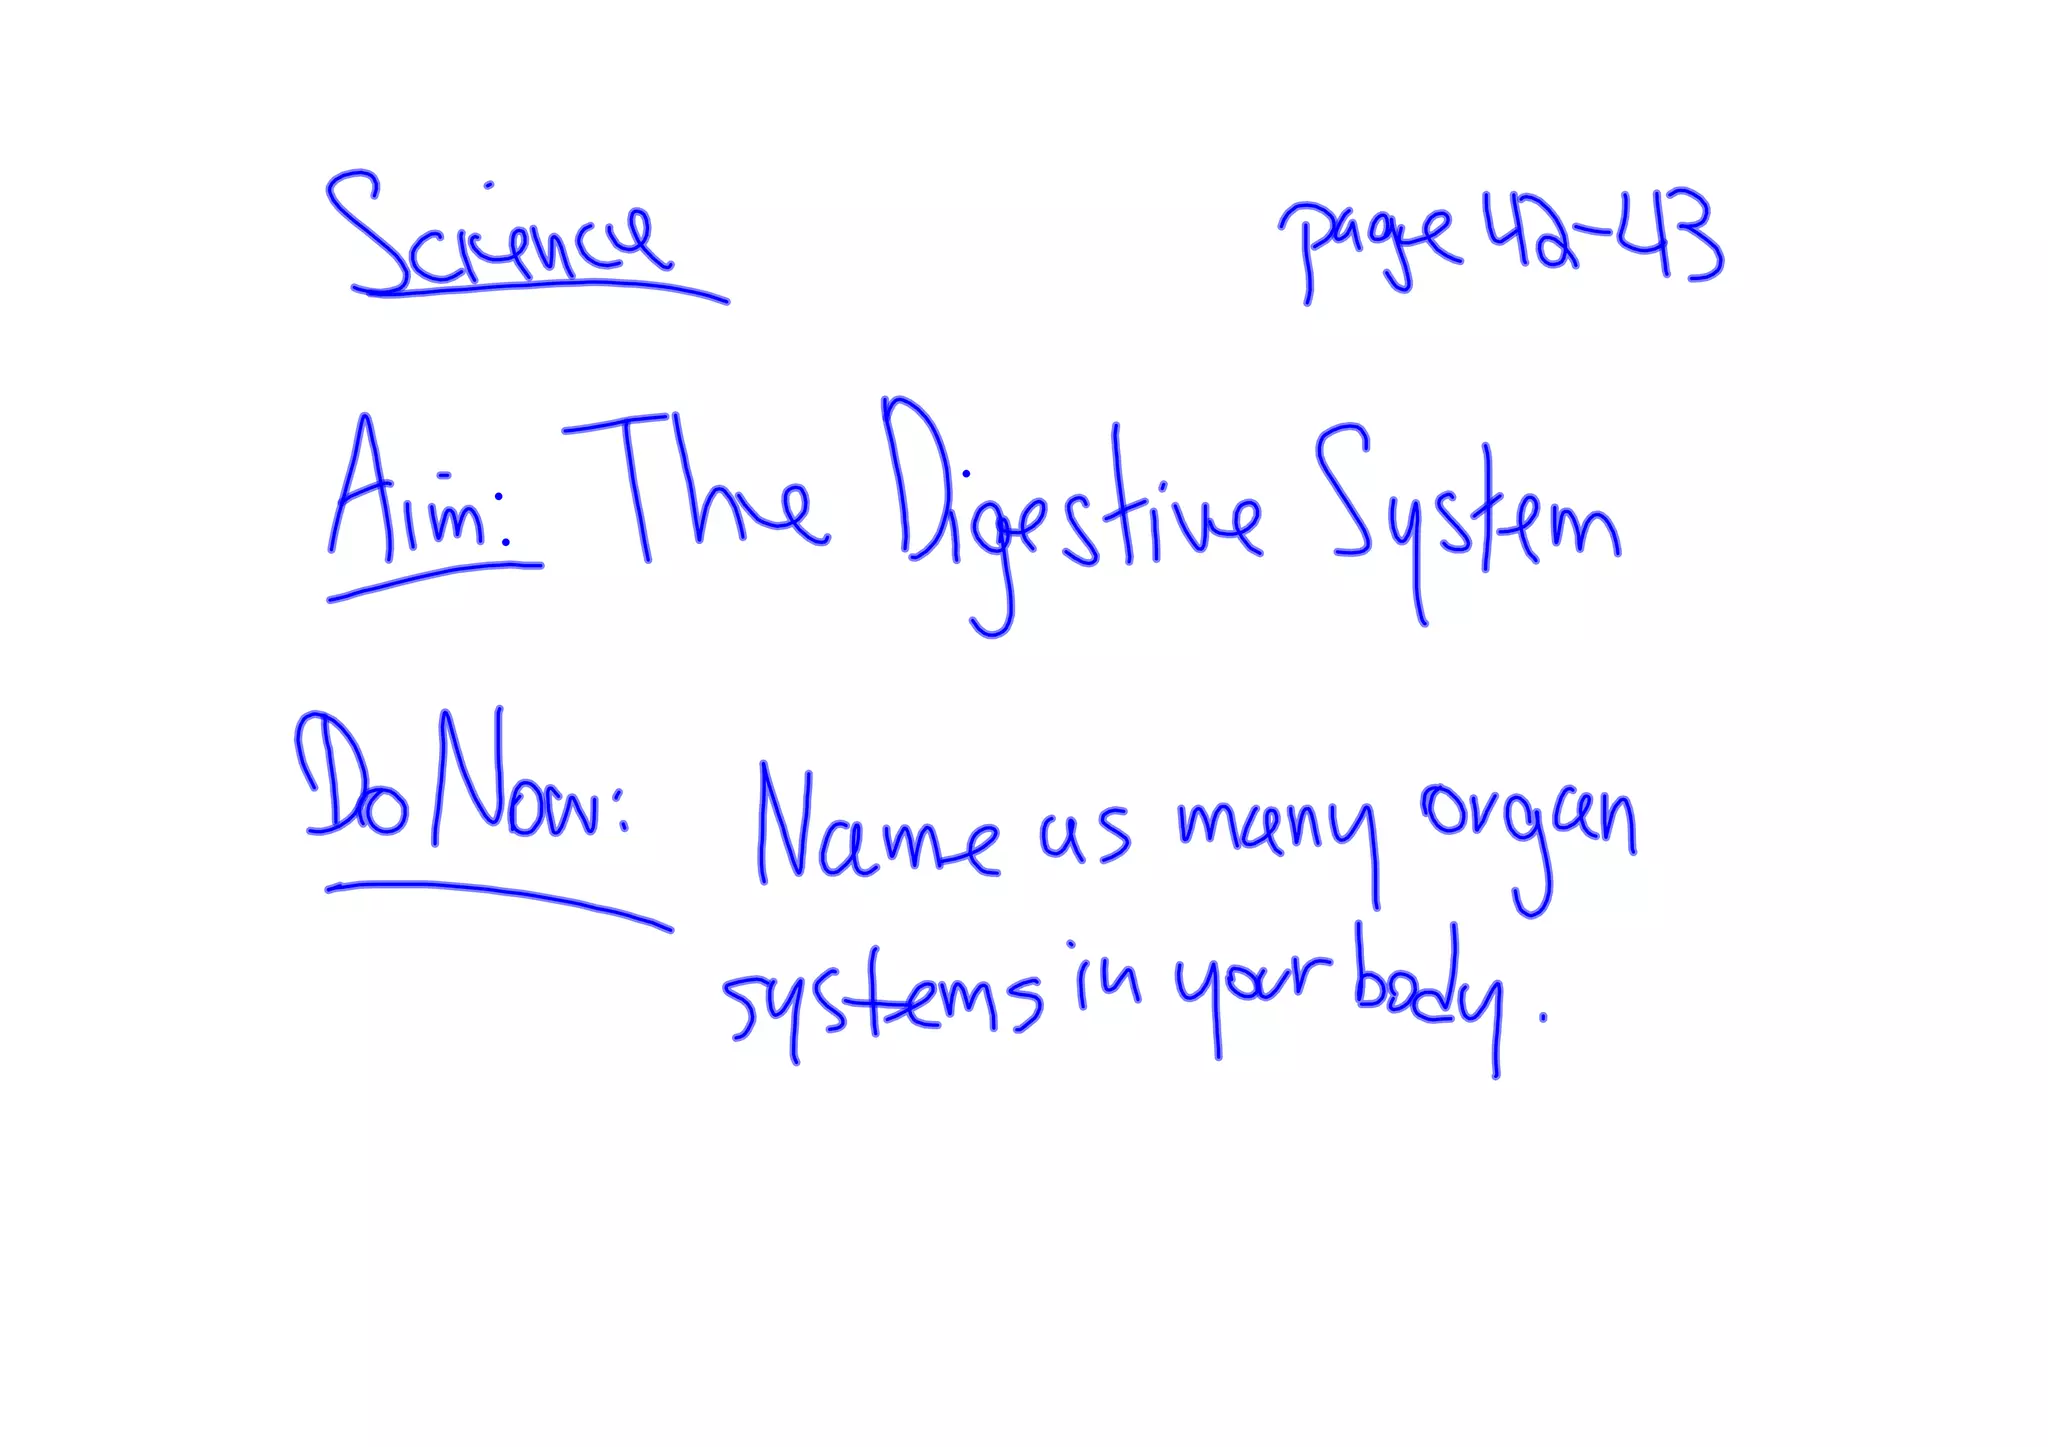 Science page 42-43
Aim: The Digestive System
Do Now: Name as many organ
systems in your body.